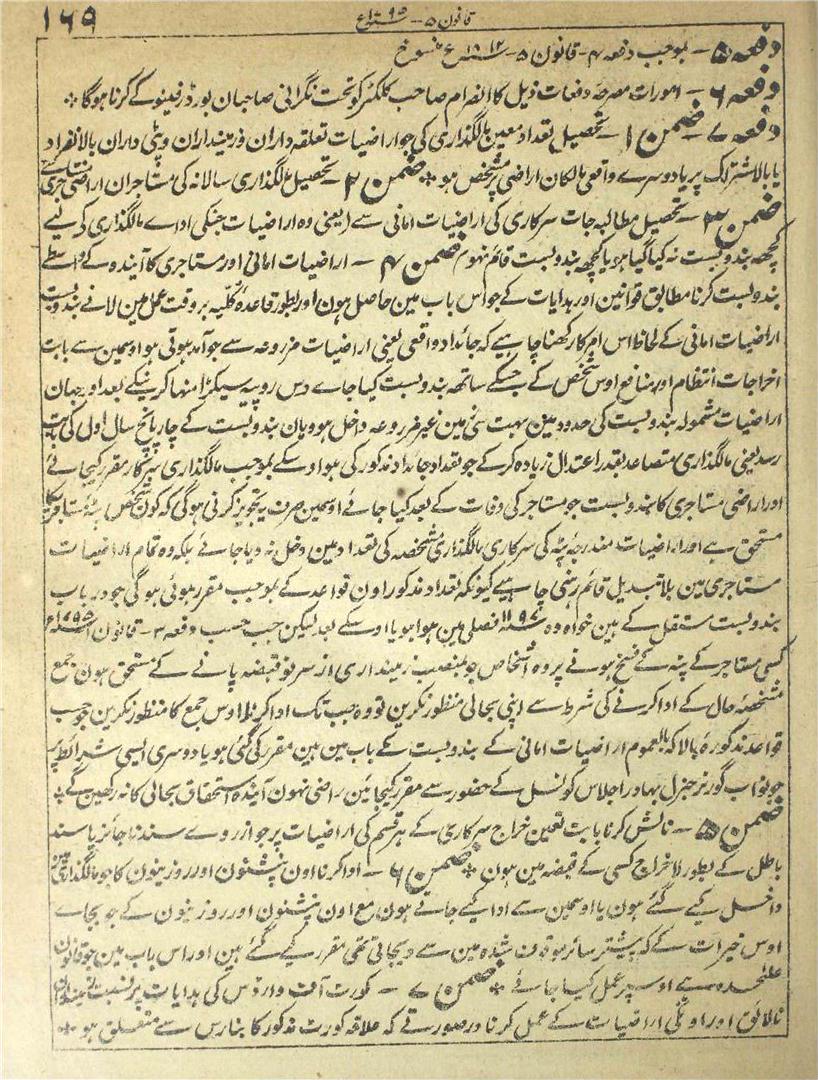 ۱۶۹ قانون ۵ - ۱۷۹۵ء
دفعہ ۵ - بموجب دفعہ ۴ - قانون ۵ - ۱۸۱۲ء منسوخ
دفعہ ۶ - امورات مصرحہ دفعات ذیل کا انصرام صاحب کلکٹر کو تحت نگرانی صاحبان بورڈ رفینو کے کرنا ہوگا *
دفعہ ۷ - ضمن ۱ - تحصیل تعداد معین مالگذاری کی جو اراضیات تعلقہ داران و زمینداران و پٹی داران بالانفراد
یا بالاشتراک پر یا دوسرے واقعی مالکان اراضی پر مشخص ہو * ضمن ۲ - تحصیل مالگذاری سالانہ کی مستاجران اراضی
ضمن ۳ - تحصیل مطالبہ جات سرکاری کی اراضیات امانی سے (یعنی وہ اراضیات جنکی اداے مالگذاری کی لیے
کچھہ بندوبست نہ کیا گیا ہو یا کچھہ بندوبست قائم نہو * ضمن ۴ - اراضیات امانی اور مستاجری کا آیندہ کے واسطے
بندوبست کرنا مطابق قوانین اور ہدایات کے جو اس باب مین حاصل ہون اور بطور قاعدہ کلیہ بر وقت عمل مین لانے بندوبست
اراضیات امانی کے لحاظ اس امر کا رکھنا چاہیے کہ جائداد واقعی یعنی اراضیات مزروعہ سے جو آمد ہوتی ہو اوسمین سے بابت
اخراجات انتظام اور منافع اوس شخص کے جسکے ساتھہ بندوبست کیا جاے دس روپیہ سیکڑا منہا کرنیکے بعد اور جہان
اراضیات مشمولہ بندوبست کی حدود مین بہت سی زمین غیر مزروعہ داخل ہو وہان بندوبست کے چار پانچ سال اولی کی بابت
رسد یعنی مالگذاری متصاعد بقدر اعتدال زیادہ کرکے جو تعداد جائداد مذکور کی ہو اوسکے بموجب مالگذاری سرکار مقرر کیجائے
اور اراضی مستاجری کا بندوبست جو مستاجر کی وفات کے بعد کیا جائے اوسمین صرف یہ تجویز کرنی ہوگی کہ کون شخص پٹہ
مستحق ہے اور اراضیات مندرجہ پٹہ کی سرکاری مالگذاری مشخصہ کی تعداد مین دخل نہ دیا جائے بلکہ وہ تمام اراضیات
مستاجری مین بلا تبدیل قائم رہنی چاہیے کیونکہ تعداد مذکور اون قواعد کے بموجب مقرر ہوئی ہوگی جو در باب
بندوبست مستقل کے ہین خواہ وہ ۱۱۹۷ فصلی مین ہوا ہو یا اوسکے بعد لیکن جب حسب دفعہ ۳ - قانون ۱۷۹۵ء
کسی مستاجر کے پٹہ کے فسخ ہونے پر وہ اشخاص جو بمنصب زمینداری از سر نو قبضہ پانے کے مستحق ہون جمع
مشخصہ حال کے ادا کرنے کی شرط سے اپنی بحالی منظور نکرین تو وہ جب تک ادا کرنا اوس جمع کا منظور نکرین جو بموجب
قواعد مذکورہ بالا کہ بالعموم اراضیات امانی کے بندوبست کے باب مین ہین مقرر کی گئی ہو یا دوسری ایسی شرائط پر
جو نواب گورنر جنرل بہادر اجلاس کونسل کے حضور سے مقرر کیجائین راضی نہون آیندہ استحقاق بحالی کا نہ رکھین گے *
ضمن ۵ - نالش کرنا بابت تعین خراج سرکاری کے ہر قسم کی اراضیات پر جو از روے سند ناجائز یا سند
باطل کے بطور لاخراج کسی کے قبضہ مین ہون * ضمن ۶ - ادا کرنا اون پنشنون اور روزینون کا جو مالگذاری مین
داخل کیے گئے ہون یا اوسمین سے ادا کیے جاتے ہون مع اون پنشنون اور روزینون کے جو بجاے
اوس خیرات کے کہ پیشتر سائر موقوف شدہ مین سے دیجاتی تھی مقرر کیے گئے ہین اور اس باب مین جو قانون
علیحدہ ہے اوسپر عمل کیا جائے * ضمن ۷ - کورٹ آف وارڈس کی ہدایات پر نسبت زمینداران
نالائق اور اونکی اراضیات کے عمل کرنا در صورتے کہ علاقہ کورٹ مذکور کا بنارس سے متعلق ہو *